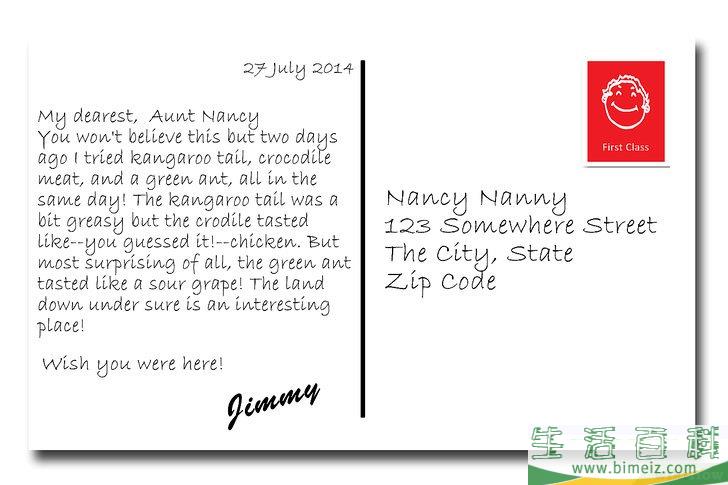 27 July 2014
My dearest,  Aunt Nancy
You won't believe this but two days
ago I tried kangaroo tail, crocodile
meat, and a green ant, all in the
same day! The kangaroo tail was a
bit greasy but the crodile tasted
like--you guessed it!--chicken. But
most surprising of all, the green ant
tasted like a sour grape! The land
down under sure is an interesting
place!
Wish you were here!
Jimmy
First Class
Nancy Nanny
123 Somewhere Street
The City, State
Zip Code
生活百科
www.bimeiz.com